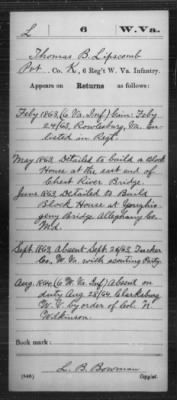 L 6 W.Va.
Thomas B. Lipscomb
Pvt., Co. K, 6 Reg't W. Va. Infantry.
Appears on Returns as follows:
Feby 1863 (6 Va. Inf) Gain: Feby
24/63, Rowlesburg, Va. En-
listed in Regt.
May 1863 Detailed to build a Block
House at the east end of
Cheat River Bridge.
June 1863 Detailed to Build
Block House at Youghio-
geny Bridge Alleghany Co.
Md.
Sept 1863 Absent Sept 26/63 Tucker
Co, W. Va. with scouting Party.
Aug. 1864 (6 W. Va. Inf) Absent on
duty Aug 28/64 Clarksburg
W. V. by order of Col. N.
Wilkinson.
Book mark:
L. B. Bowman
(546) Copyist.